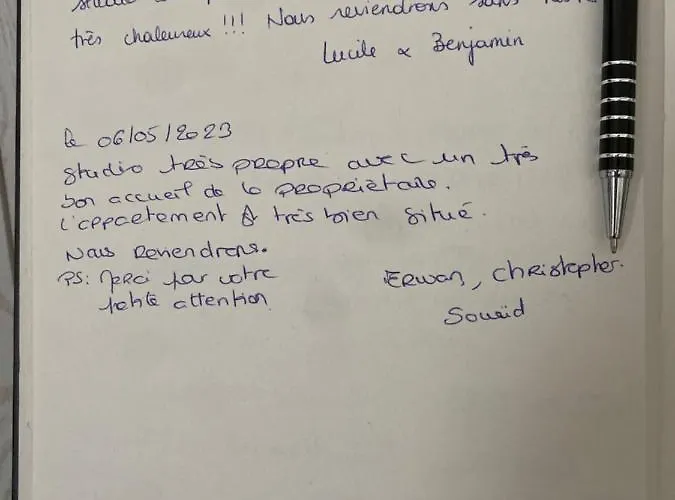 très chaleureux !!! Nous reviendrons sans
Lucile & Benjamin
le 06/05/2023
Studio très propre avec un très
bon accueil de la propriétaire.
L'appartement & très bien situé.
Nous Reviendrons.
PS: Merci pour votre
petite attention
Erwan, Christopher.
Souaïd